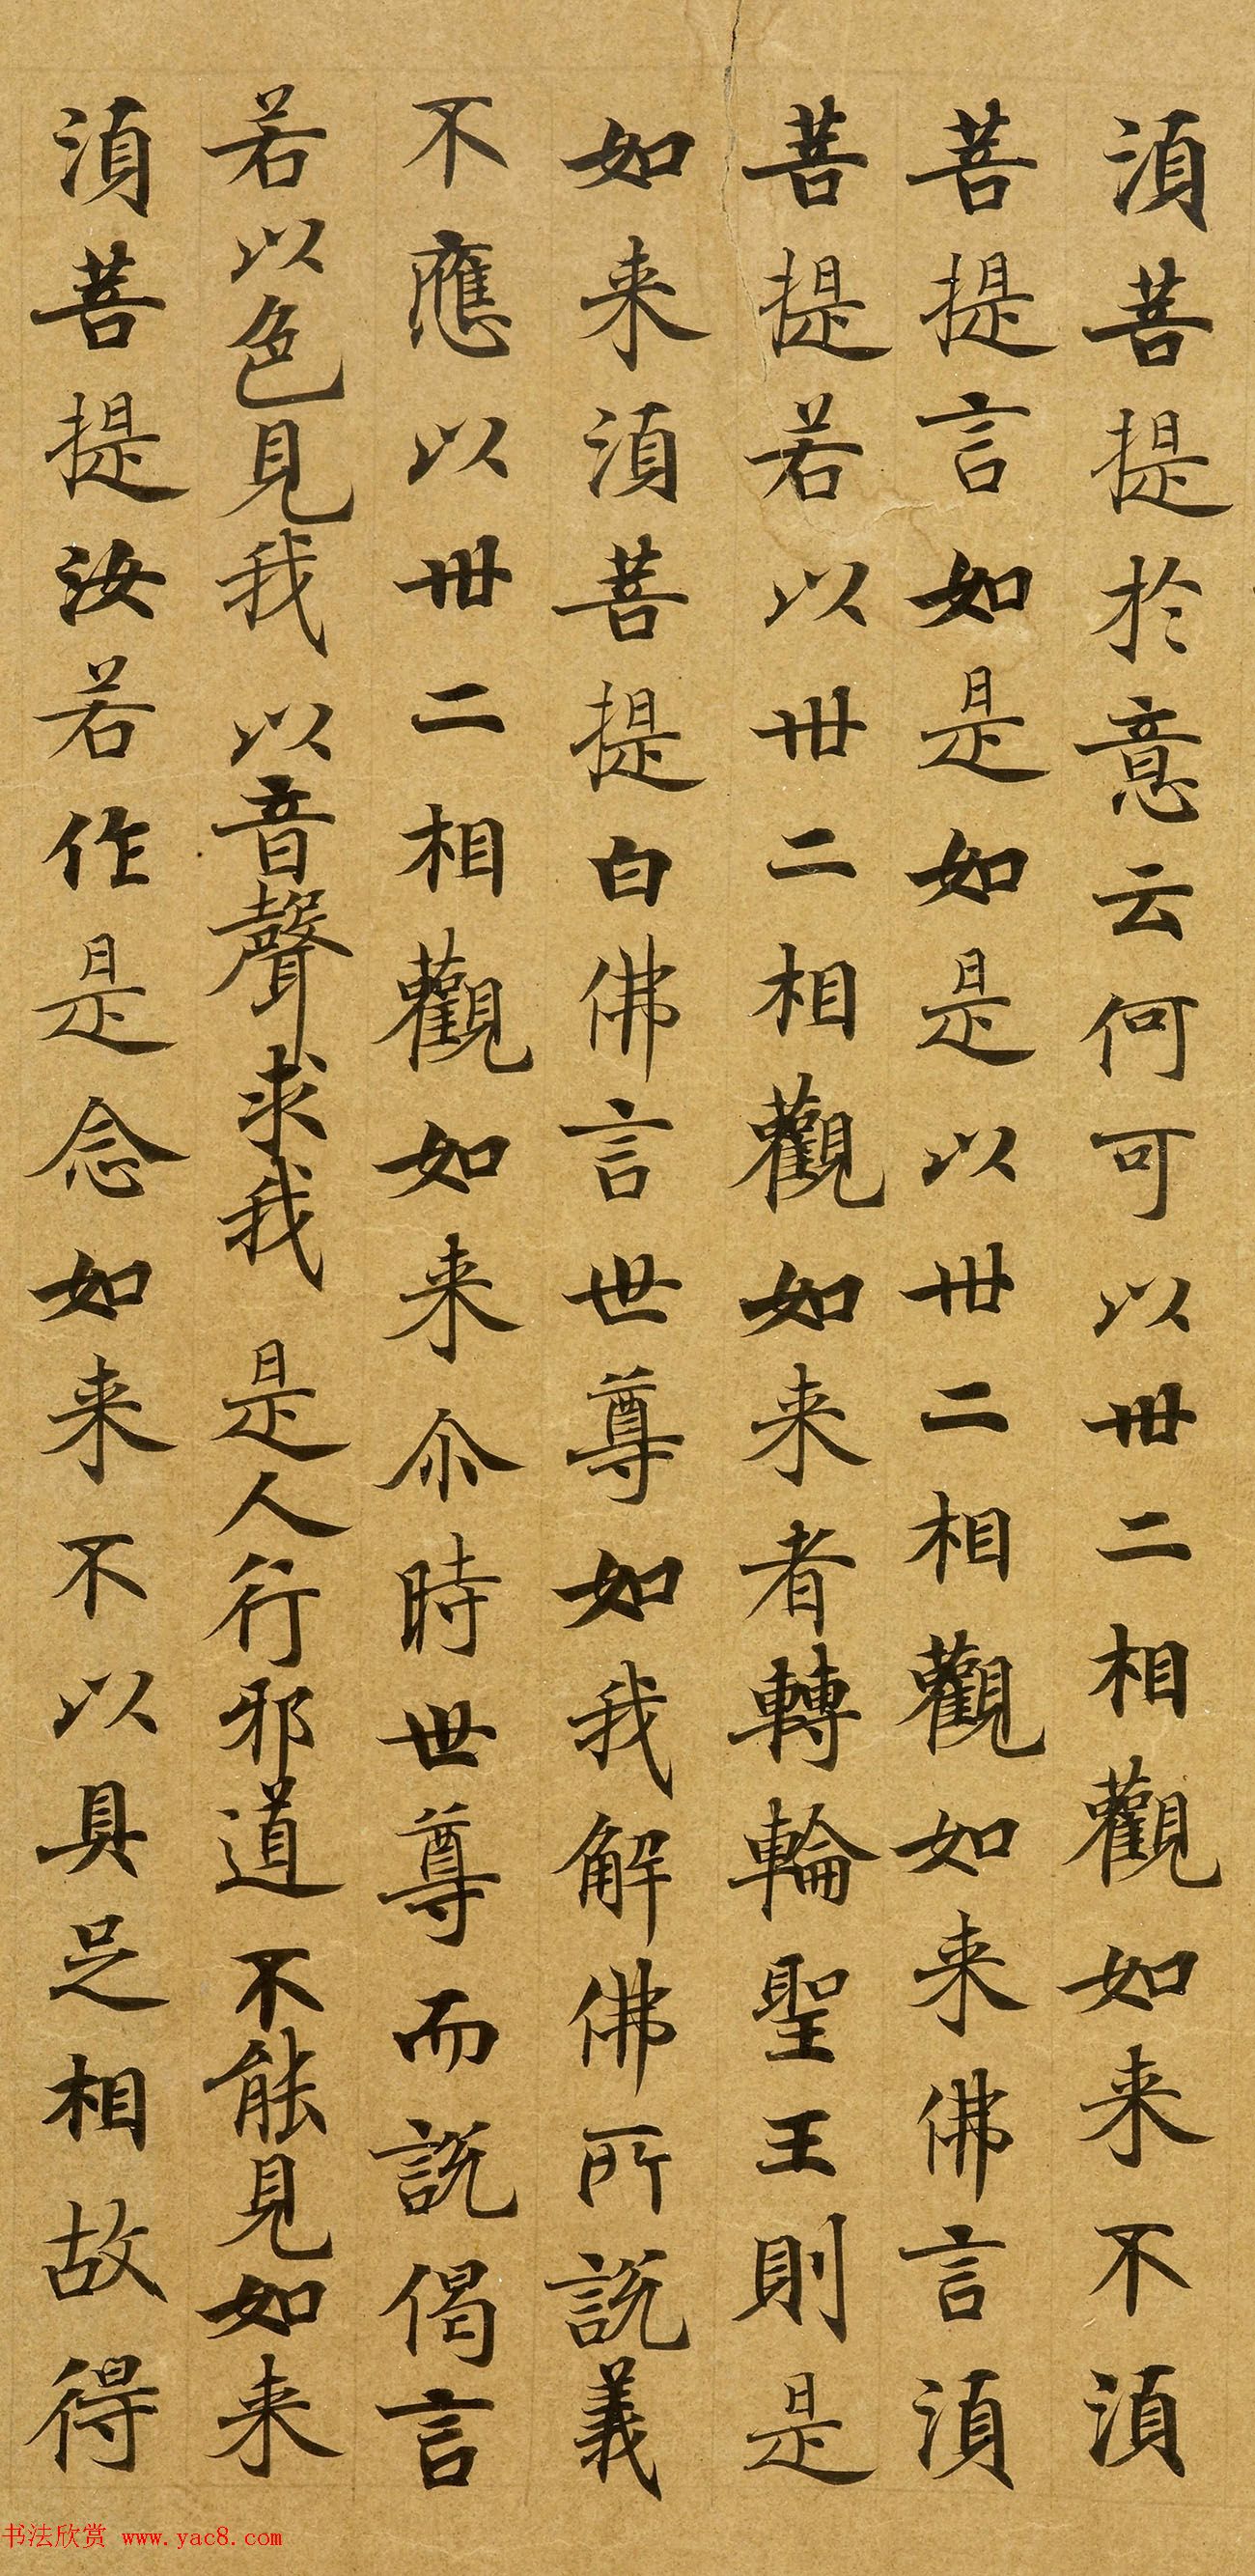 湏菩提於意云何可以卅二相觀如来不湏
菩提言如是如是以卅二相觀如来佛言湏
菩提若以卅二相觀如来者轉輪聖王則是
如来湏菩提白佛言世尊如我解佛所說義
不應以卅二相觀如来尒時世尊而說偈言
若以色見我以音聲求我 是人行邪道 不能見如来
湏菩提汝若作是念如来不以具足相故得
书法欣赏 www.yac8.com